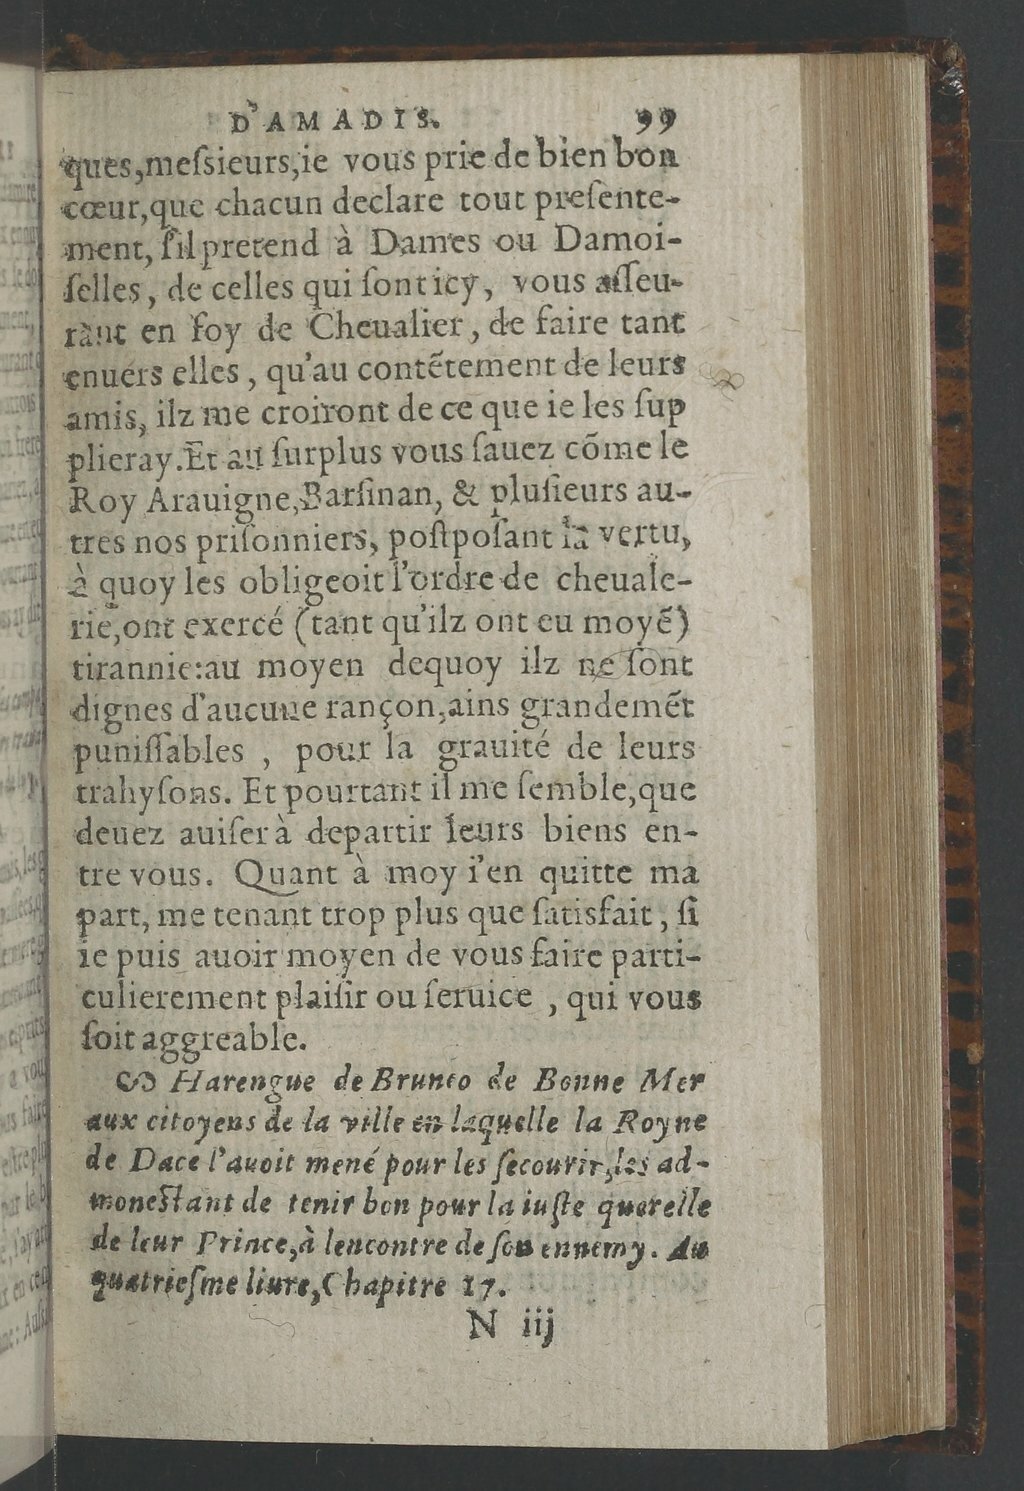 D'AMADIS. 99
ques,meſsieurs,ie vous prie de bien bon
cœur,que chacun declare tout preſente-
ment, ſ'il pretend à Dames ou Damoi-
ſelles, de celles qui ſont icy, vous aſſeu-
rant en foy de Cheualier, de faire tant
enuers elles, qu'au contẽtement de leurs
amis, ilz me croiront de ce que ie les ſup
plieray.Et au ſurplus vous ſauez cõme le
Roy Arauigne,Barſinan, & pluſieurs au-
tres nos priſonniers, poſtpoſant la vertu,
à quoy les obligeoit l'ordre de cheuale-
rie,ont exercé (tant qu'ilz ont eu moyẽ)
tirannie:au moyen dequoy ilz ne ſont
dignes d'aucune rançon,ains grandemẽt
puniſſables , pour la grauité de leurs
trahyſons. Et pourtant il me ſemble,que
deuez auiſer à departir leurs biens en-
tre vous. Quant à moy i'en quitte ma
part, me tenant trop plus que ſatisfait, ſi
ie puis auoir moyen de vous faire parti-
culierement plaiſir ou ſeruice , qui vous
ſoit aggreable.
Harengue de Bruneo de Bonne Mer
aux citoyens de la ville en laquelle la Royne
de Dace l'auoit mené pour les ſecourir,les ad-
moneſtant de tenir bon pour la iuſte querelle
de leur Prince,à lencontre de ſon ennemy. Au
quatrieſme liure,Chapitre 17.
N iij